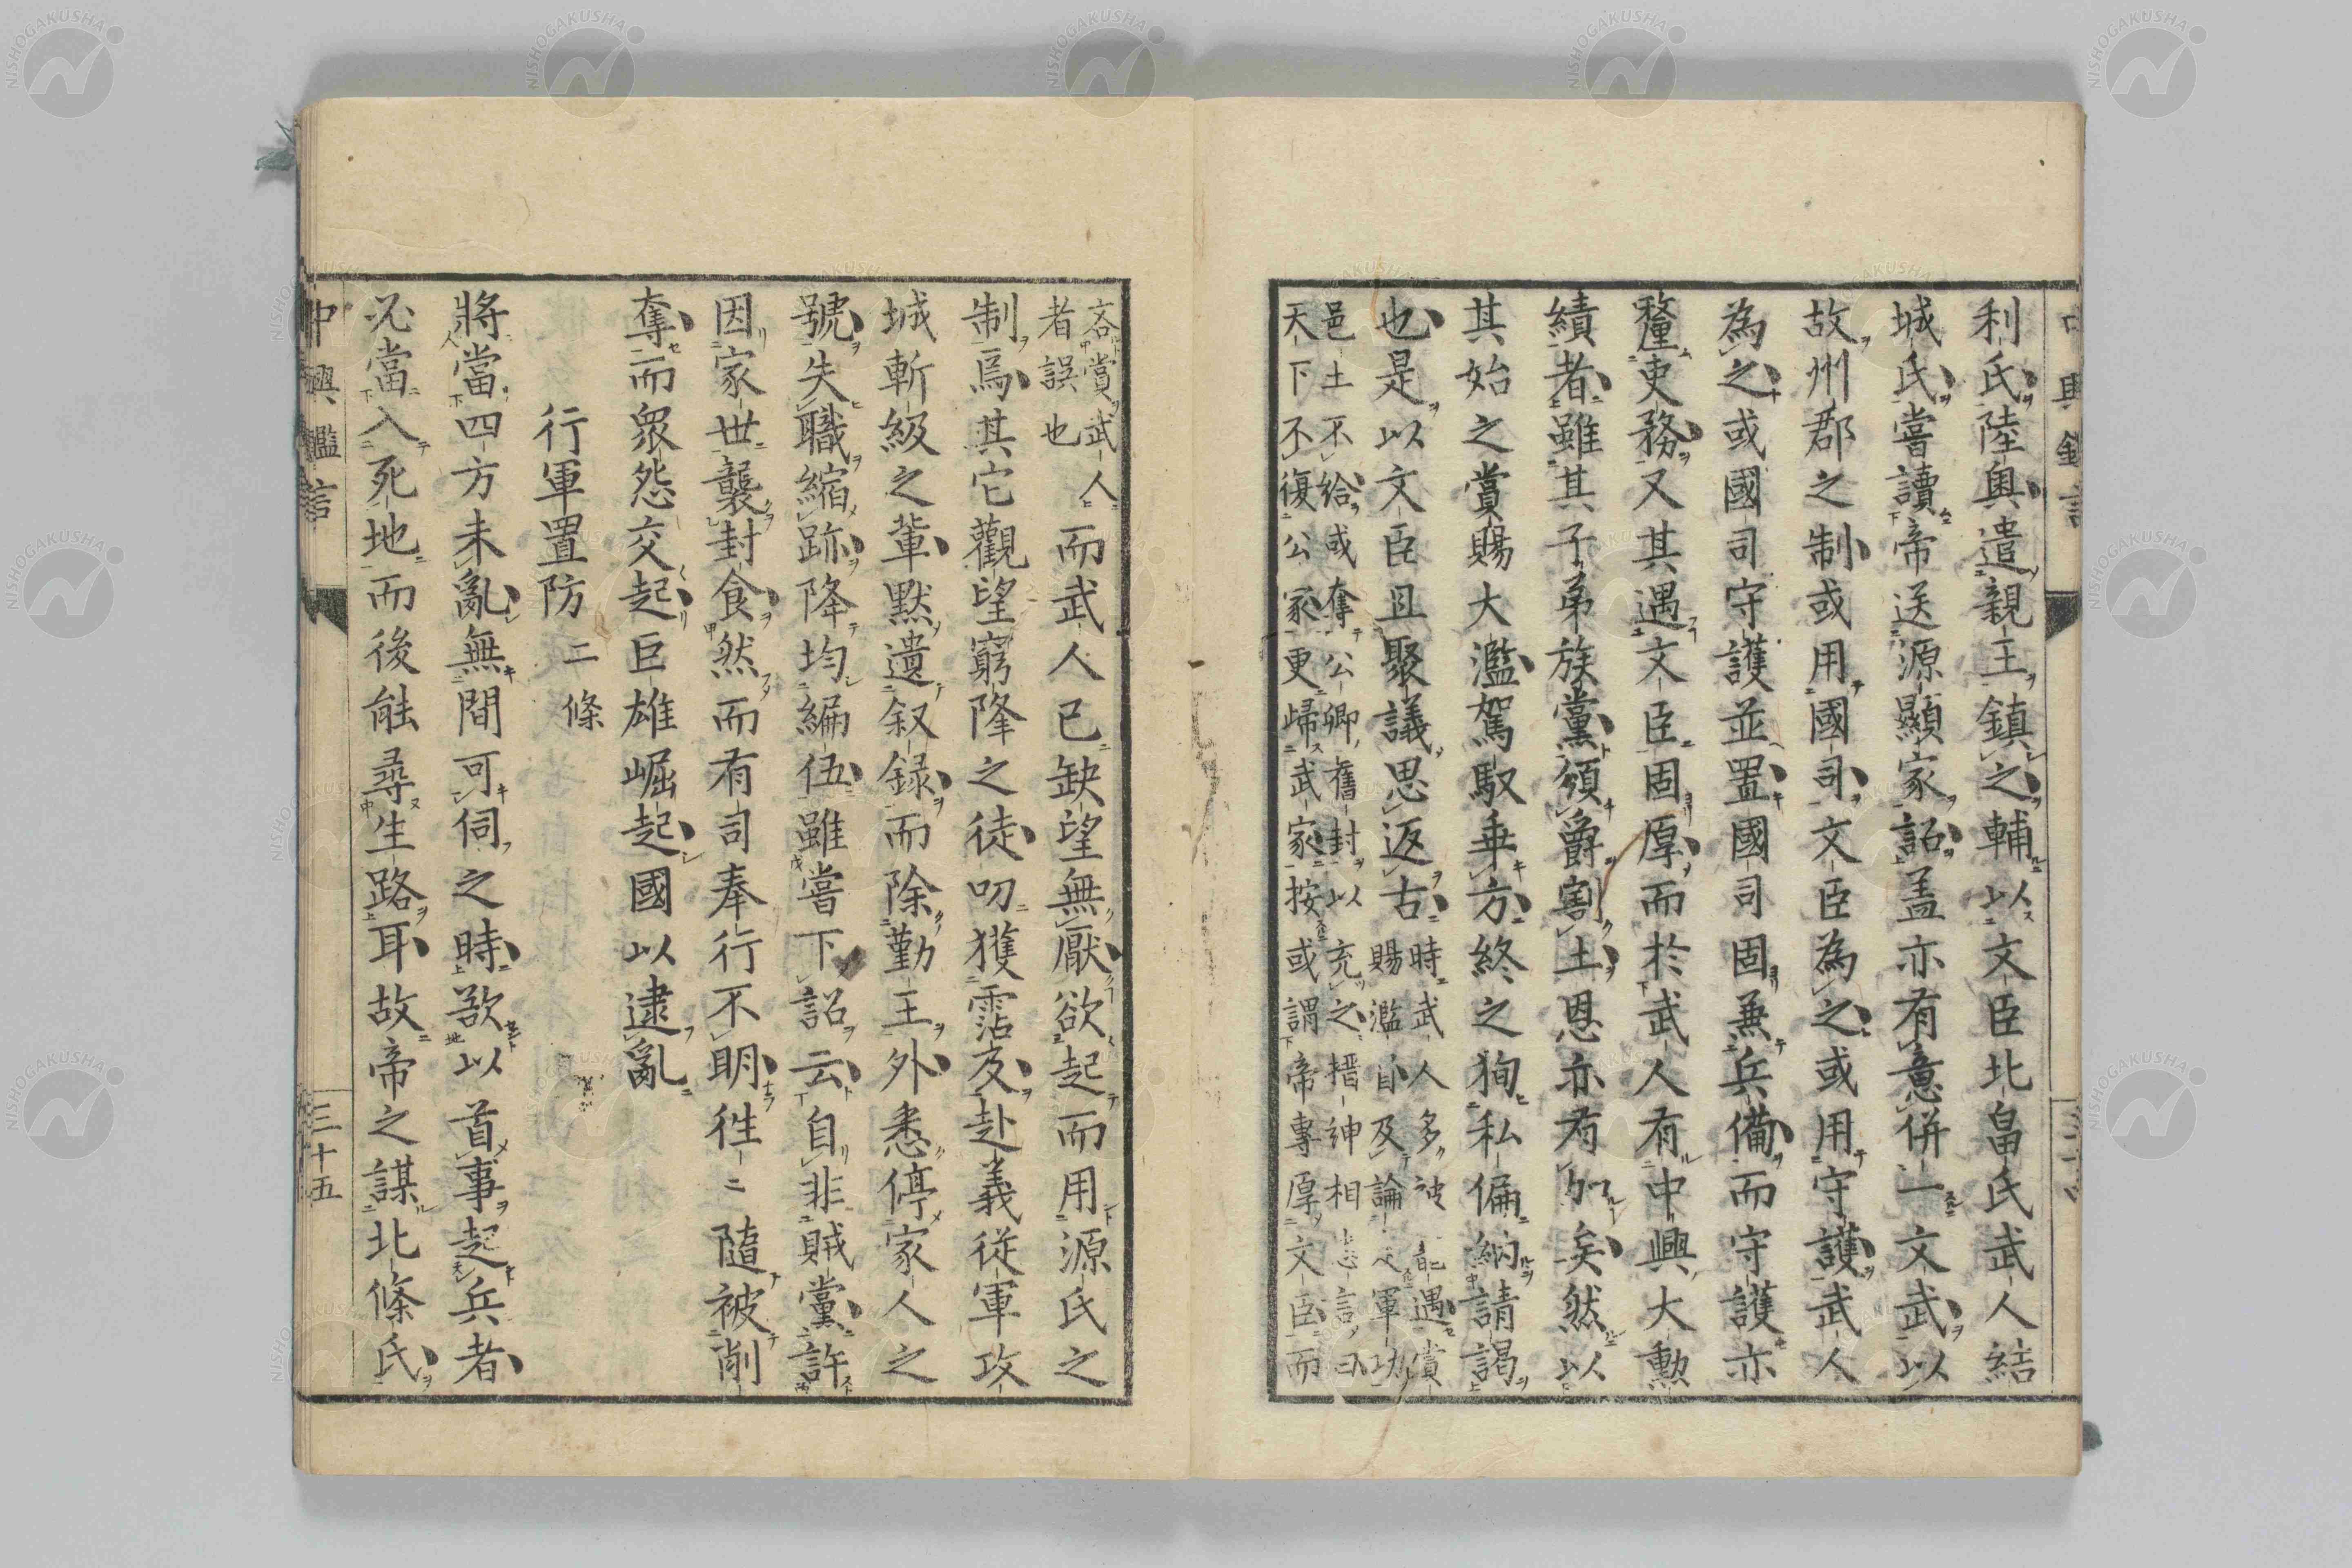 利氏陸奧遣親王鎮之輔以文臣北畠氏武人結
城氏嘗讀帝送源顯家詔盖亦有意併一文武以
故州郡之制或用國司文臣為之或用守護武人
為之或國司守護並置國司固兼兵備而守護亦
釐吏務又其遇文臣固厚而於武人有中興大勲
績者雖其子弟族黨頒爵割土恩亦有加矣然以
其始之賞賜大濫駕馭乖方終之狥私偏納請謁
也是以文臣且聚議思返古
時武人多被 遇賞
賜濫自及論 軍功
邑土不給或奪公卿舊封以充之搢紳相 言曰
天下不復公家更歸武家按或謂帝專厚文臣而
吝賞武人
者誤也
而武人已缺望無厭欲起而用源氏之
制焉其它觀望窮降之徒叨獲霑及赴義從軍攻
城斬級之輩黙遺叙録而除勤王外悉停家人之
號失職縮跡降均編伍雖嘗下詔云自非賊黨許
因家世襲封食然而有司奉行不明徃ニ隨被削
奪而衆怨交起巨雄崛起國以逮亂
行軍置防 二條
將當四方未亂無間可伺之時欲以首事起兵者
必當入死地而後能尋生路耳故帝之謀北條氏
中興鑑言
三十五
NISHOGAKUSHA